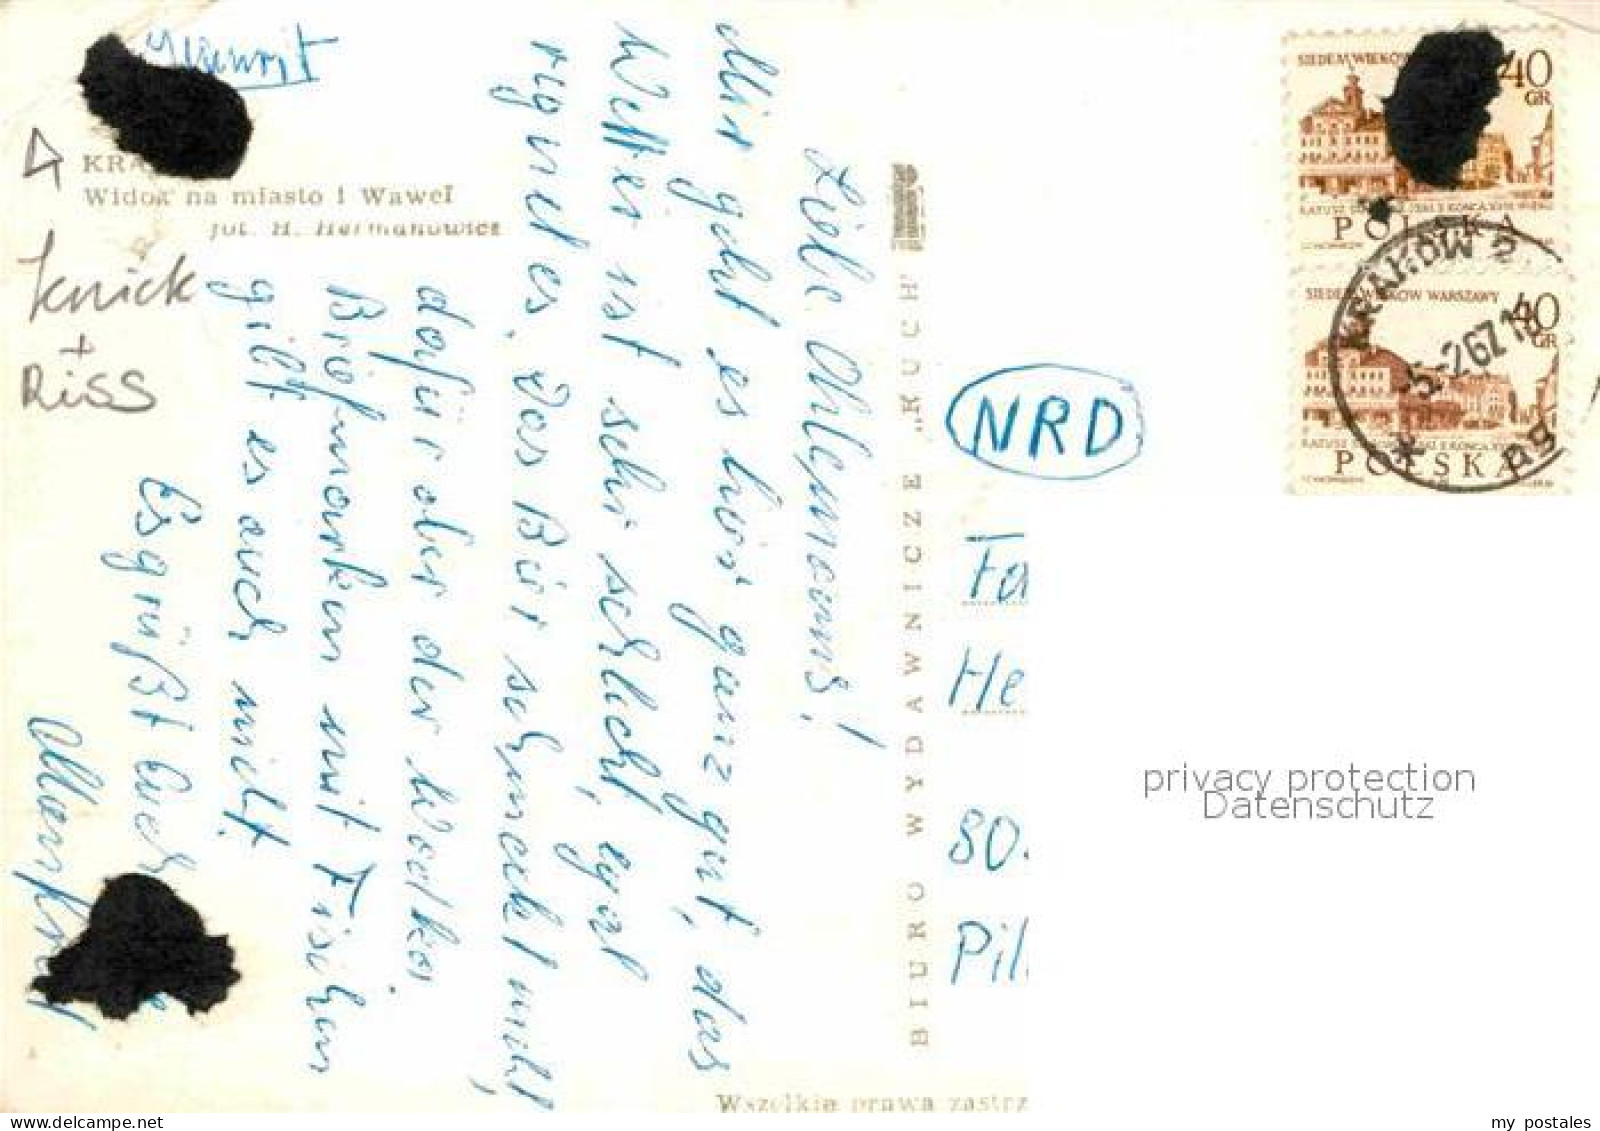 KRA
Widok na miasto i Wawel
fot. H. Hermanowicz
Knick
+
Riss
Liebe Ohlemanns!
Mir geht es hier ganz gut, das
Wetter ist sehr schlecht, egal
regnet es. Das Bier schmeckt nicht,
dafür aber der Wodka.
Briefmarken mit Fischen
gibt es auch nicht.
Es grüßt Euch
Manfred
BIURO WYDAWNICZE "RUCH"
NRD
Fa
He
80.
Pil.
Wszelkie prawa zastrz
SIEDEM WIEKÓW
40
GR
POLSKA
SIEDEM WIEKÓW WARSZAWY
40
GR
POLSKA
KRAKÓW 2
5.-2.67.18
privacy protection
Datenschutz
my postales